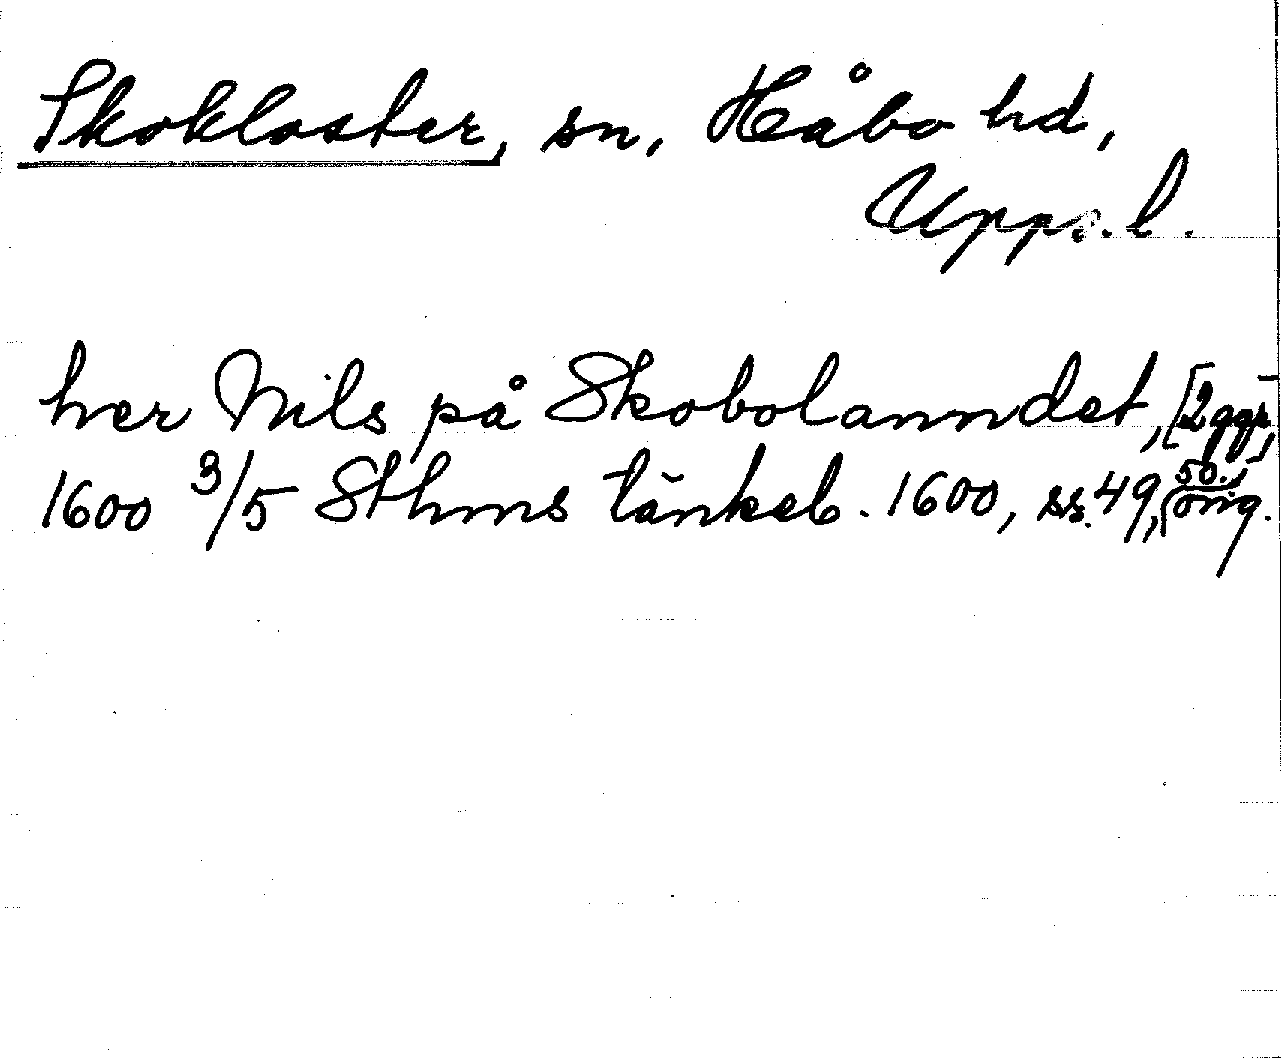 Skokloster, sn, Håbo hd,
Upps. l.
her Nils på Skobolanndet, [2 ggr],
1600 3/5 Sthms tänkeb. 1600, ss. 49, 50., orig.